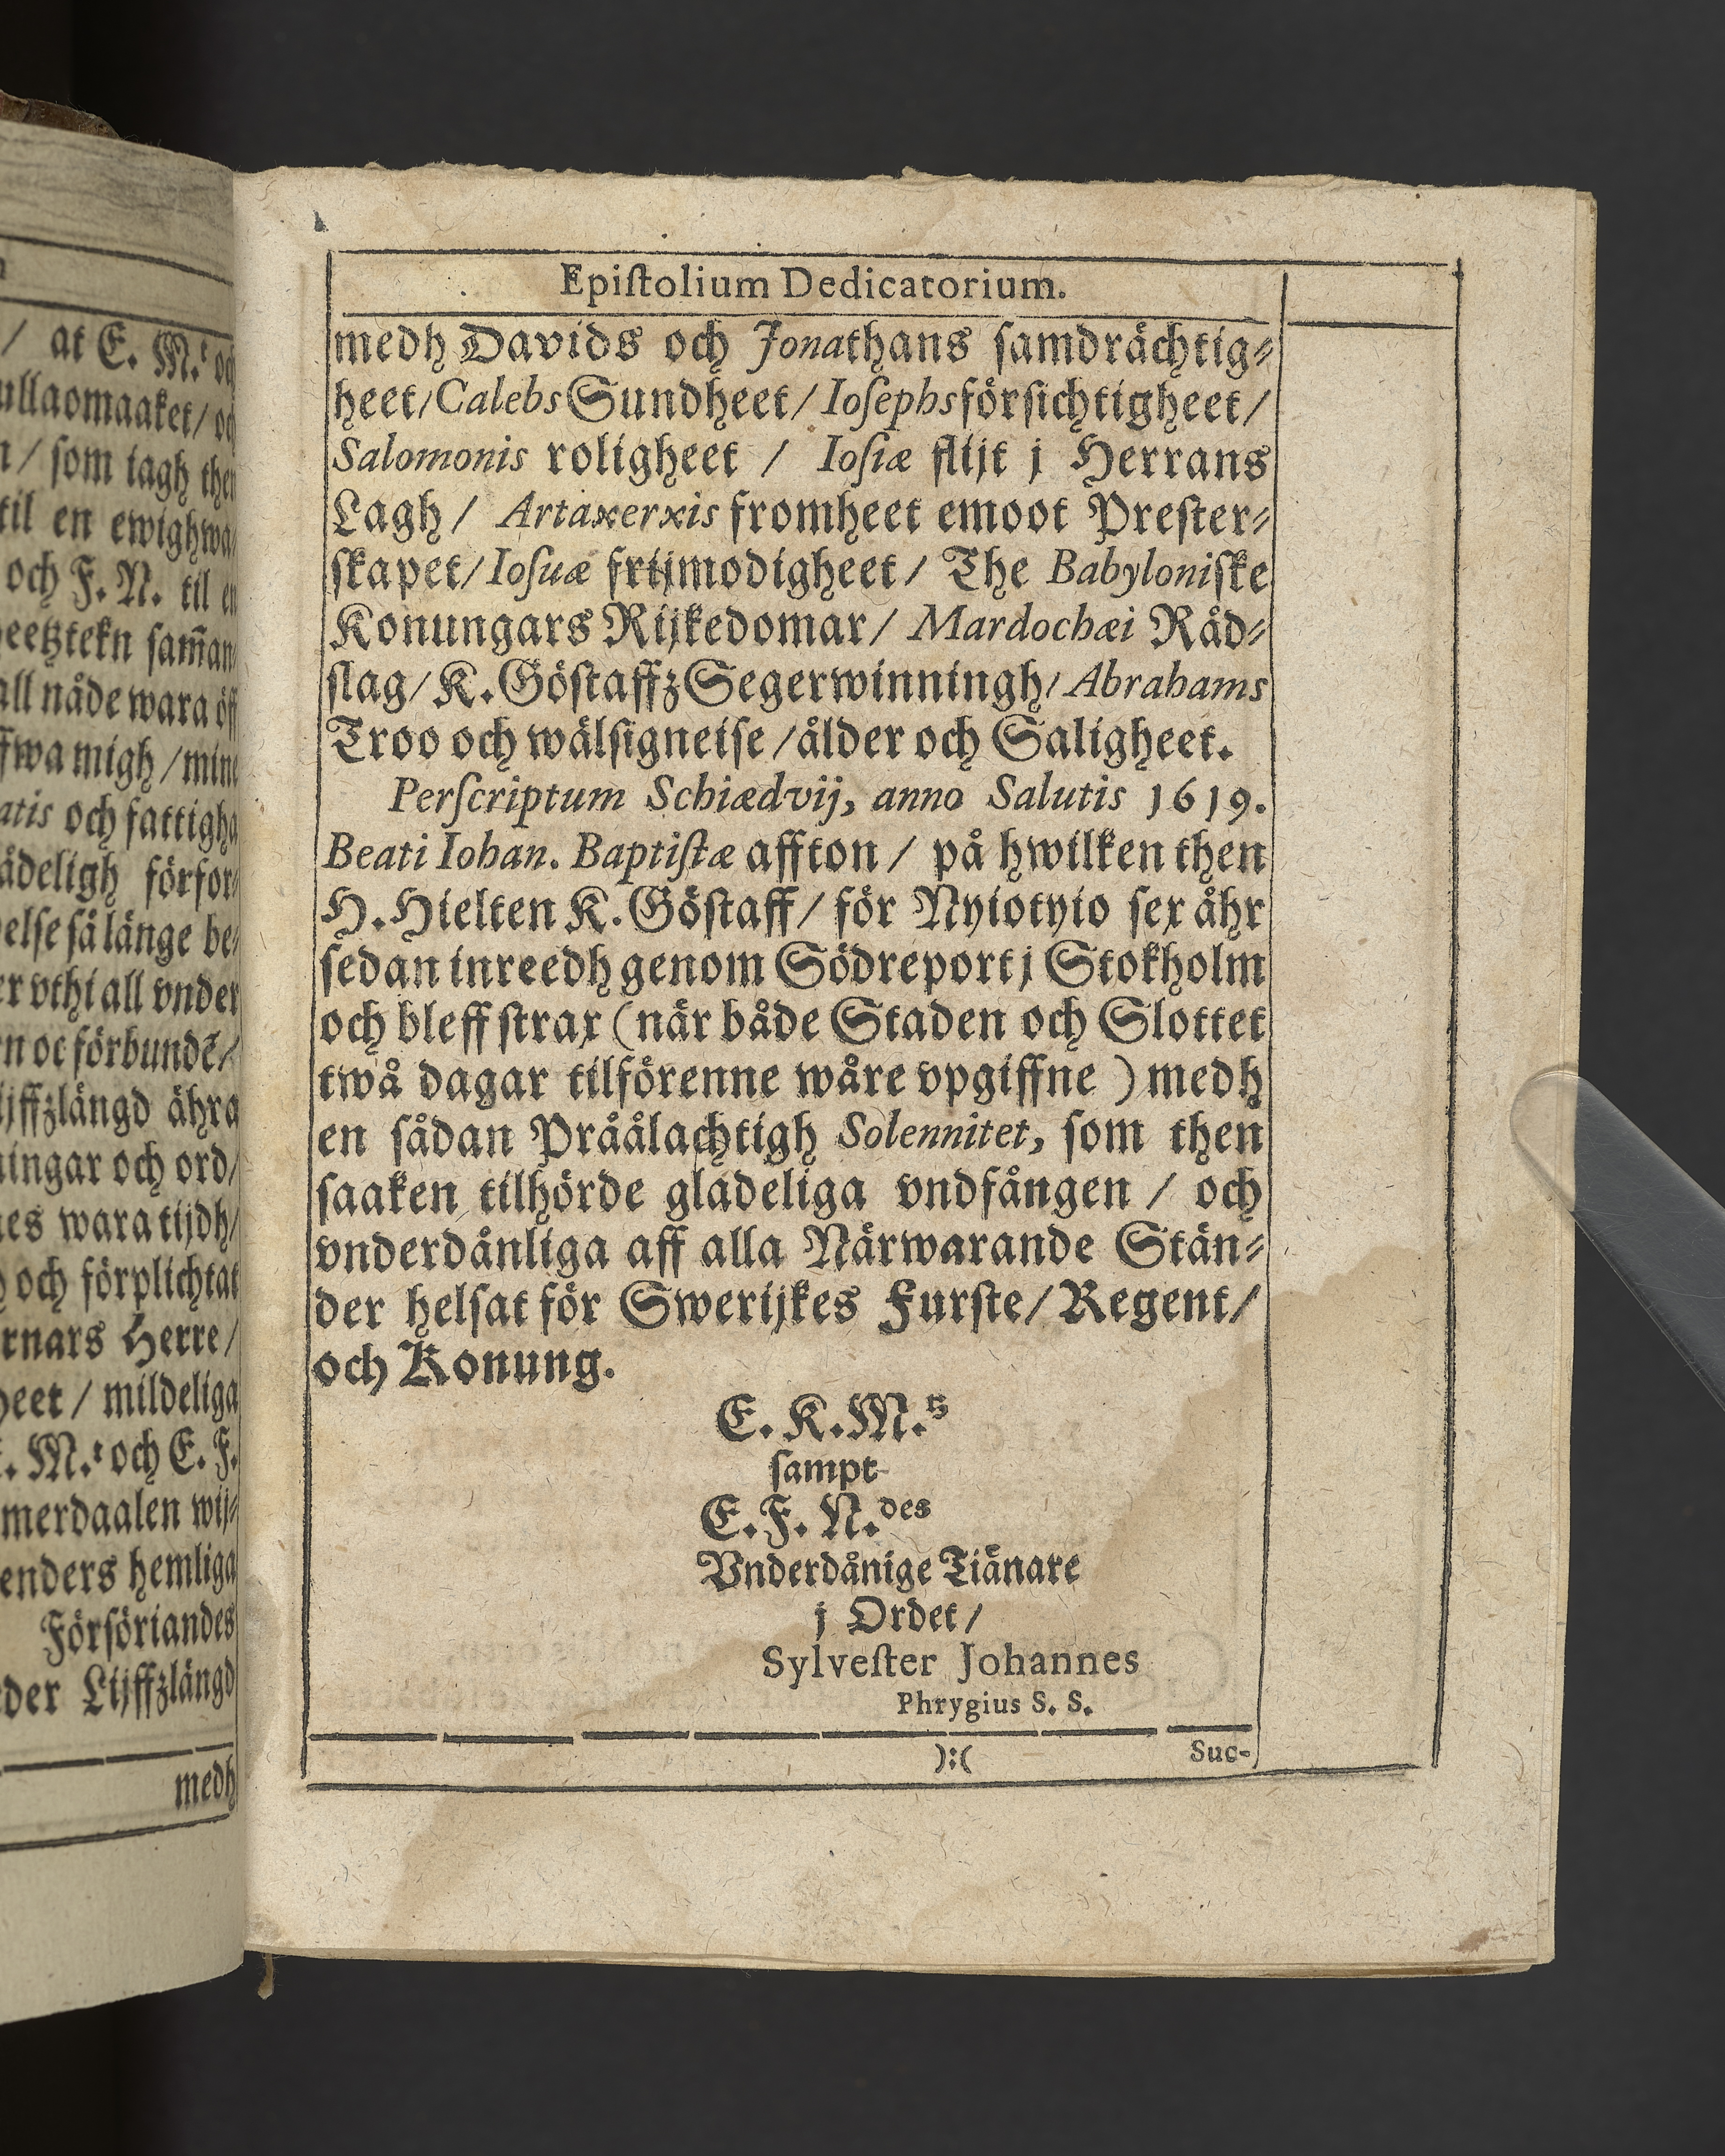 / at E. M.t oc
ullaomaaket/ oc
n/ som tagh then
til en ewighwa⸗
och F. N. til en
heetztekn sam̃an⸗
all nåde wara öff
ffwa migh/mine
atis och fattigha
ådeligh förfor⸗
else så länge be⸗
er vthi all vnder
rn oc förbundē/
lijffzlängd ähra
ningar och ord/
nes wara tijdh/
h och förplichtat
rnars Herre/
heet / mildeliga
E. M.t och E. F.
merdaalen wij⸗
enders hemliga
Försöriandes
der Lijffzlängd
medh
Epiſtolium Dedicatorium.
medh Davids och Jonathans ſamdrächtig⸗
heet/Calebs Sundheet/ Ioſephs förſichtigheet/
Salomonis roligheet / Ioſiæ flijt j Herrans
Lagh/ Artaxerxis fromheet emoot Preſter⸗
ſkapet/Ioſuæ frijmodigheet/ The Babyloniſke
Konungars Rijkedomar/ Mardochæi Råd⸗
ſlag/K. Göſtaffz Segerwinningh/Abrahams
Troo och wälſigneiſe/ålder och Saligheet.
Perſcriptum Schiædvij, anno Salutis 1619.
Beati Iohan. Baptiſtæ affton / på hwilken then
H. Hielten K. Göſtaff/ för Nyiotyio ſex åhr
ſedan inreedh genom Södreport j Stokholm
och bleff ſtrax (när både Staden och Slottet
twå dagar tilförenne wåre vpgiffne ) medh
en ſådan Pråålachtigh Solennitet, ſom then
ſaaken tilhörde gladeliga vndfången / och
vnderdånliga aff alla Närwarande Stän⸗
der helſat för Swerijkes Furſte/Regent/
och Konung.
E. K. M.s
ſampt
E. F. N.des
Vnderdånige Tiänare
j Ordet/
Sylveſter Johannes
Phrygius S. S.
):( Suc-